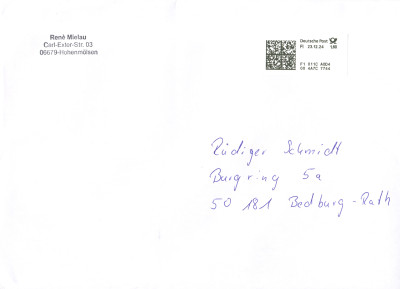 René Mielau
Carl-Exter-Str. 03
06679-Hohenmölsen
Deutsche Post
FI 23.12.24 1,60
21 011C A6D4
Rüdiger Schmidt
Burgring 5a
50 181 Bedburg-Rath